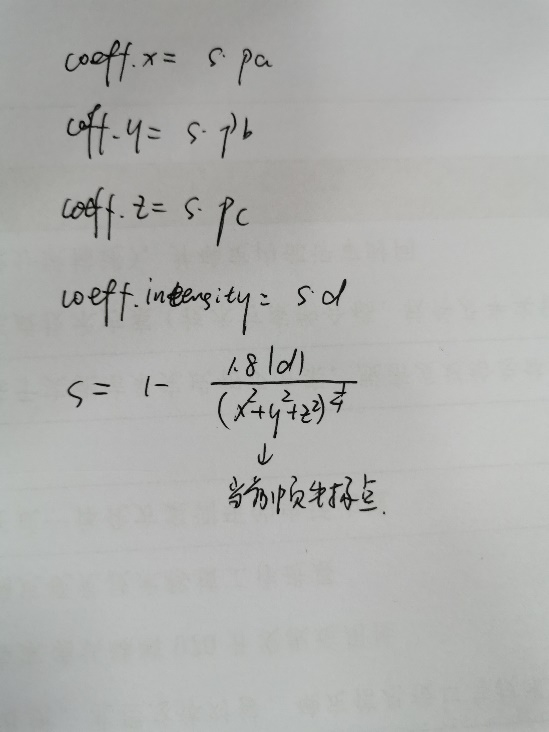 coeff.x = s·pa
coff.y = s·pb
coeff.z = s·pc
coeff.intensity = s·d
s = 1 - 1.8|d| / (x²+y²+z²)^(1/4)
↓
当前帧坐标点.